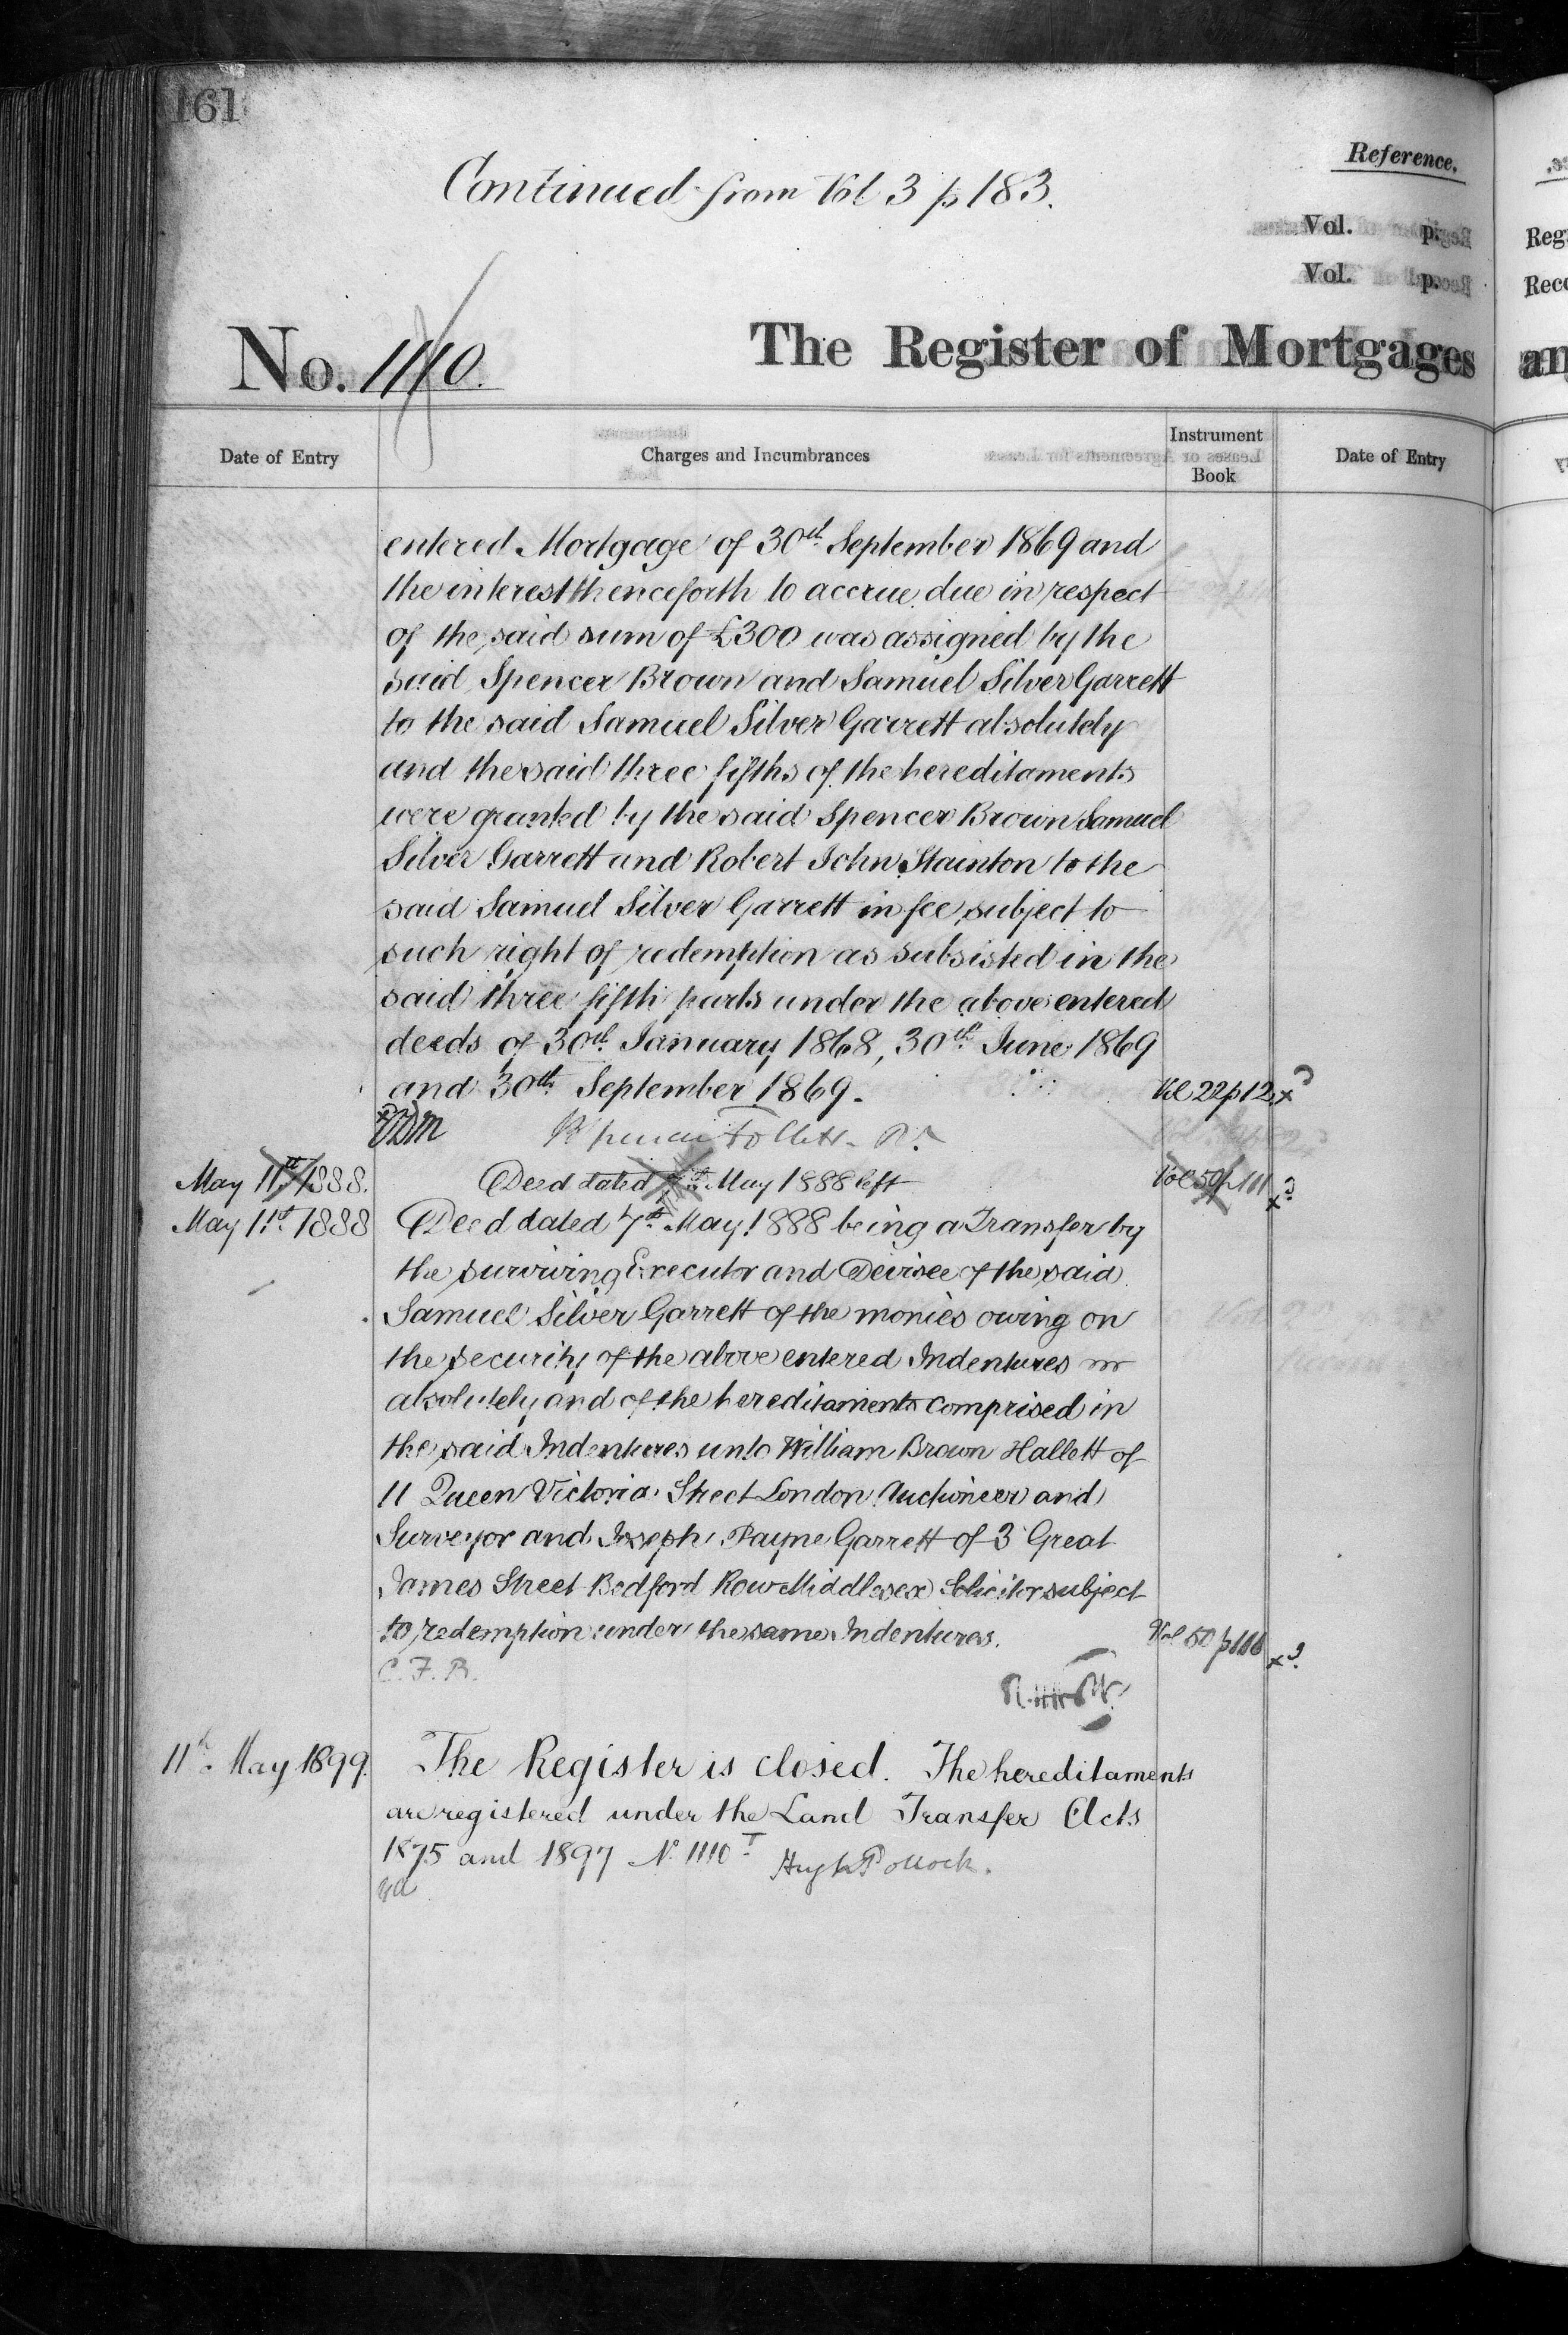 161
Continued from Vol 3 p 183.
Reference.
Vol. p.
Vol. p.
No. 1110.
The Register of Mortgages
Date of Entry
Charges and Incumbrances
Instrument Book
Date of Entry
entered Mortgage of 30th September 1869 and
the interest thenceforth to accrue due in respect
of the said sum of £300 was assigned by the
said Spencer Brown and Samuel Silver Garrett
to the said Samuel Silver Garrett absolutely
and the said three fifths of the hereditaments
were granted by the said Spencer Brown Samuel
Silver Garrett and Robert John Stainton to the
said Samuel Silver Garrett in fee subject to
such right of redemption as subsisted in the
said three fifth parts under the above entered
deeds of 30th January 1868, 30th June 1869
and 30th September 1869. Vol 22 p 12
May 11th 1888. Deed dated 7th May 1888 left Vol 50 p 111
May 11th 1888 Deed dated 7th May 1888 being a Transfer by
the surviving Executor and Devisee of the said
Samuel Silver Garrett of the monies owing on
the security of the above entered Indentures
absolutely and of the hereditaments comprised in
the said Indentures unto William Brown Hallett of
11 Queen Victoria Street London Auctioneer and
Surveyor and Joseph Payne Garrett of 3 Great
James Street Bedford Row Middlesex Solicitor subject
to redemption under the same Indentures. Vol 50 p 111
C. F. B.
11th May 1899. The Register is closed. The hereditaments
are registered under the Land Transfer Acts
1875 and 1897 No 1110 T Hugh Pollock.
an
Reg
Reco